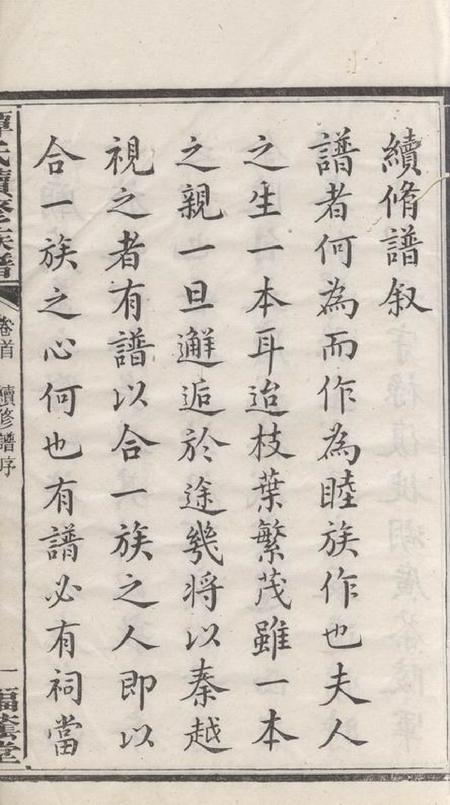 續脩譜叙
譜者何為而作為睦族作也夫人
之生一本耳迨枝葉繁茂雖一本
之親一旦邂逅於途幾將以秦越
視之者有譜以合一族之人即以
合一族之心何也有譜必有祠當
氏續修族譜
卷首 續修譜序
一
堂